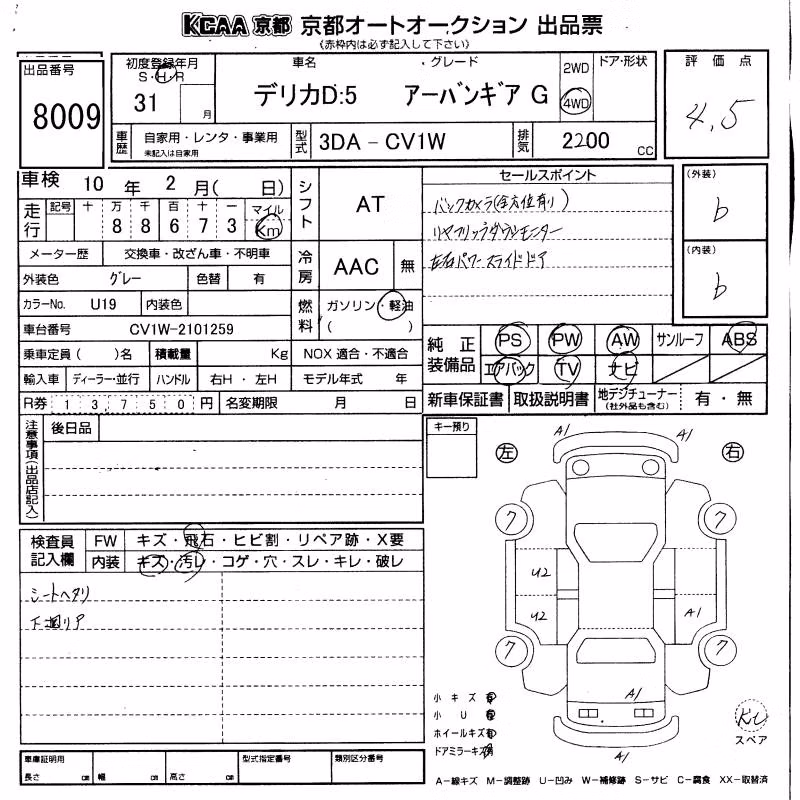 KCAA 京都 京都オートオークション 出品票
(赤枠内は必ず記入して下さい)
出品番号 8009
初度登録年月 S・H・R 31 月
車名 ・グレード デリカD:5 アーバンギア G
2WD 4WD
ドア・形状
評価点 4.5
車歴 自家用・レンタ・事業用 未記入は自家用
型式 3DA - CV1W
排気 2200 cc
車検 10 年 2 月( 日)
走行 記号 十 万 千 百 十 一 8 8 6 7 3 マイル Km
シフト AT
セールスポイント
バックカメラ(全方位有り)
リヤフリップダウンモニター
左右パワースライドドア
(外装) b
(内装) b
メーター歴 交換車・改ざん車・不明車
冷房 AAC 無
外装色 グレー 色替 有
カラーNo. U19 内装色
燃料 ガソリン・軽油 ( )
車台番号 CV1W-2101259
乗車定員( )名 積載量 Kg NOX 適合・不適合
輸入車 ディーラー・並行 ハンドル 右H・左H モデル年式 年
R券 13,750 円 名変期限 月 日
純正装備品 PS PW AW サンルーフ ABS
エアバック TV ナビ
新車保証書 取扱説明書 地デジチューナー (社外品も含む) 有・無
注意事項(出品店記入) 後日品
キー預り
左 右
A1 A1
7 7
U2
U2 A1
7 7
A1
A1
検査員記入欄 FW キズ・飛石・ヒビ割・リペア跡・X要
内装 キズ・汚レ・コゲ・穴・スレ・キレ・破レ
シートヘタリ
下廻りア
小キズ有
小U有
ホイールキズ有
ドアミラーキズ有
スペア
車庫証明用 長さ cm 幅 cm 高さ cm
型式指定番号 類別区分番号
A-線キズ M-調整跡 U-凹み W-補修跡 S-サビ C-腐食 XX-取替済